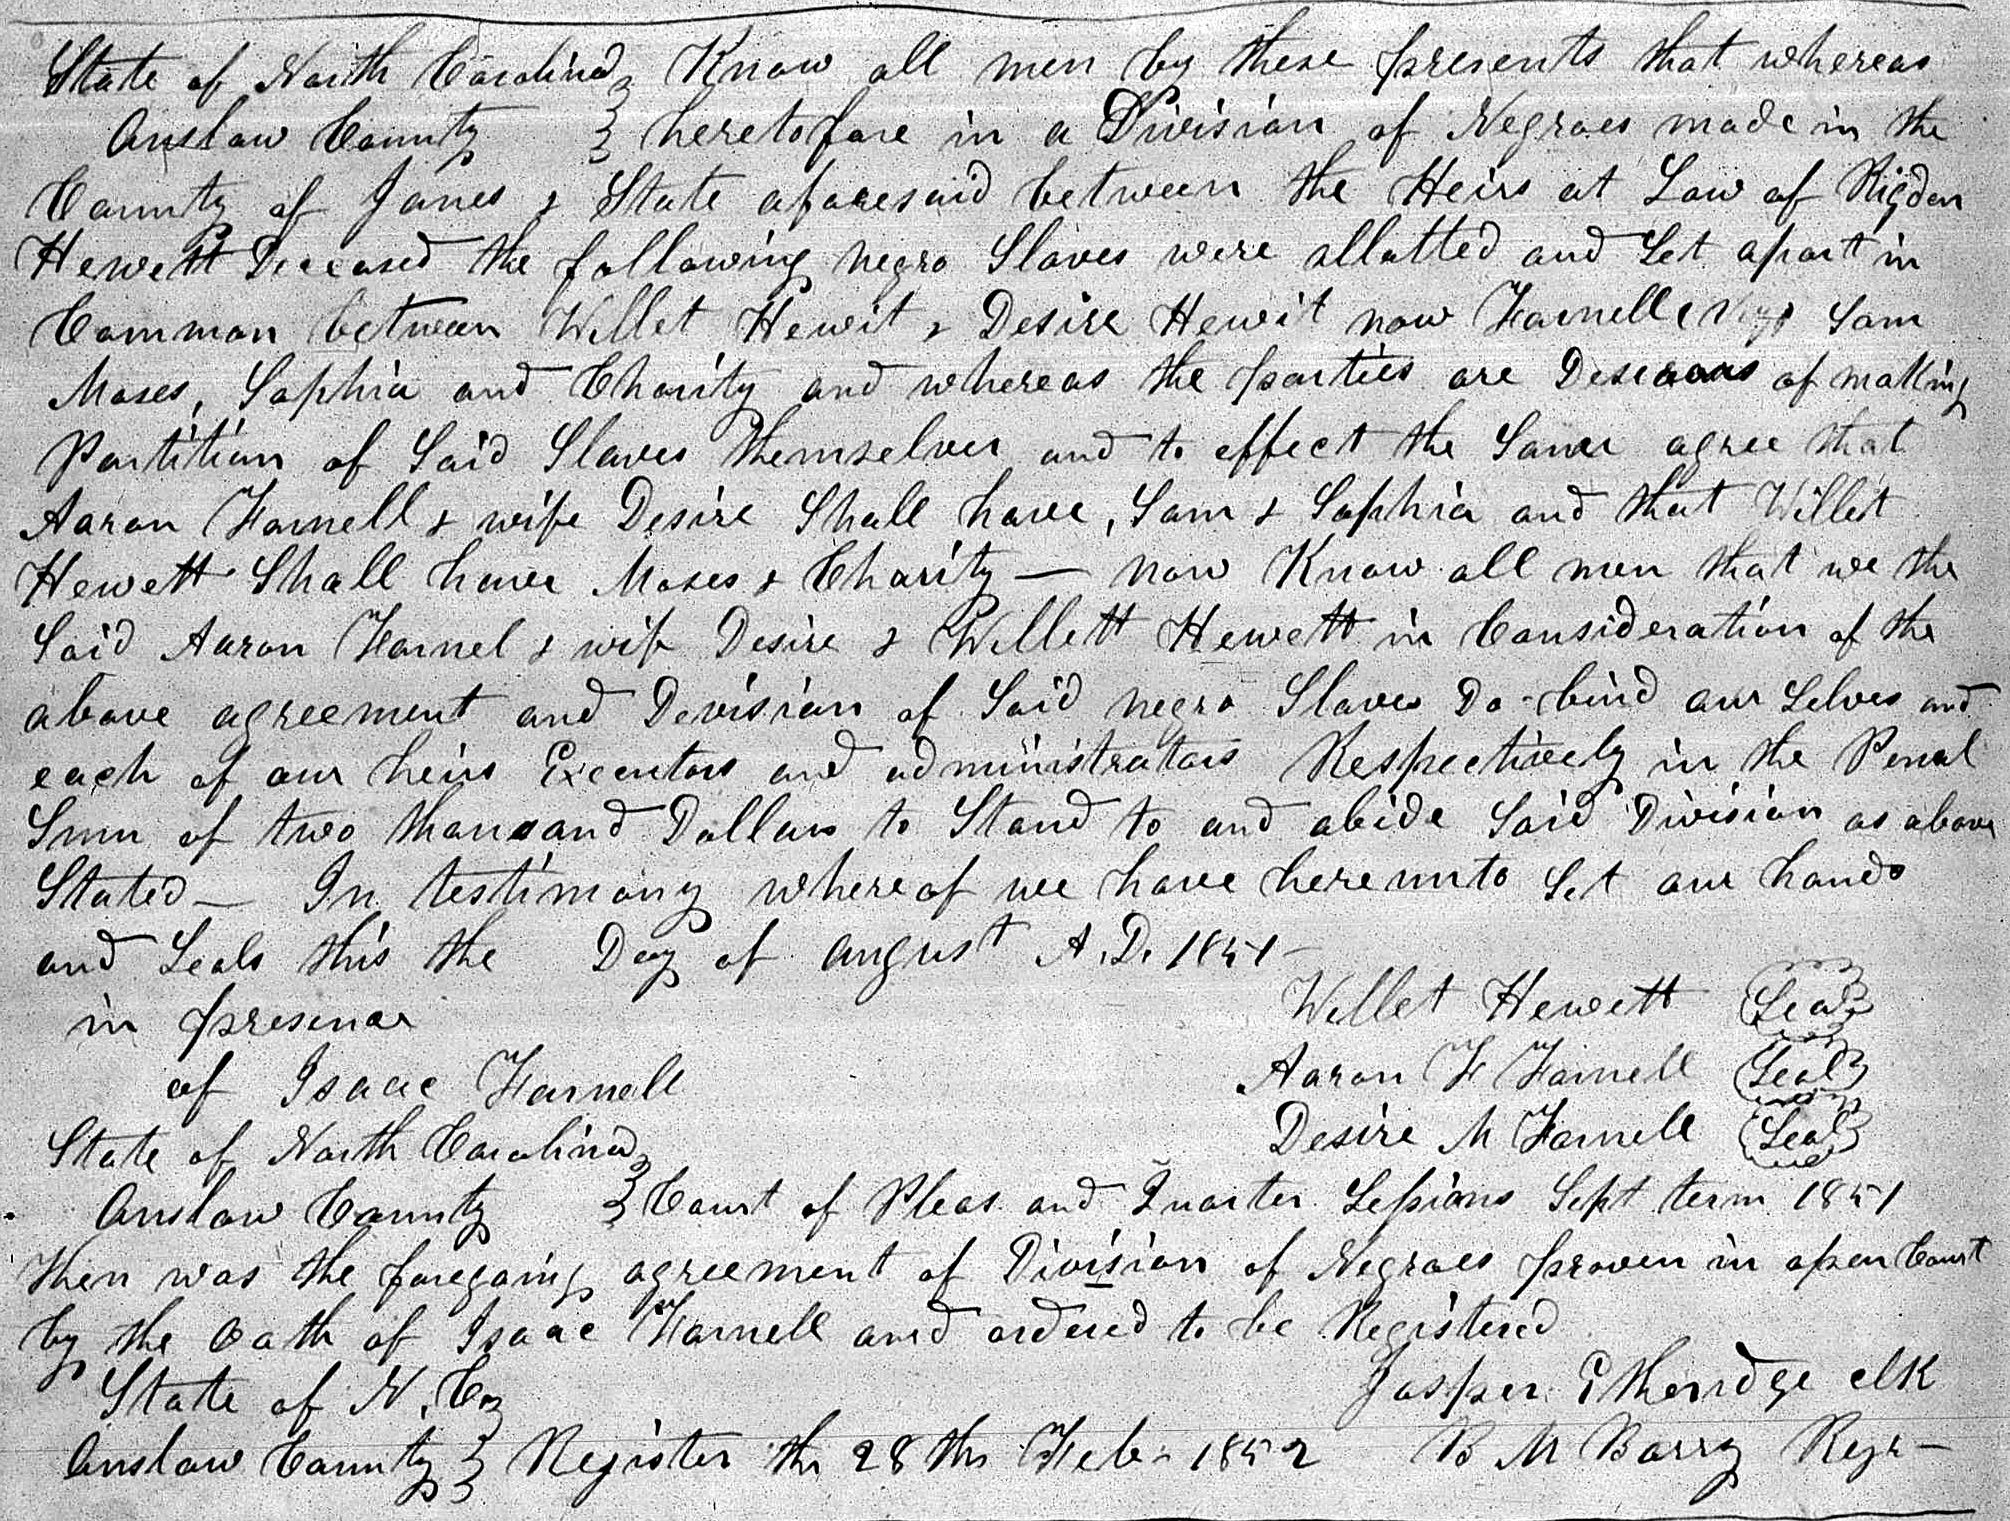 State of North Carolina } Know all men by these presents that whereas
Onslow County } heretofore in a Division of Negroes made in the
County of Jones & State aforesaid between the Heirs at Law of Rigdon
Hewett Deceased the following negro Slaves were allotted and Set apart in
Common between Willet Hewit & Desire Hewit now Farnell Sam
Moses, Sophia and Charity and whereas the parties are Desirous of making
Partition of Said Slaves themselves and to effect the Same agree that
Aaron Farnell & wife Desire Shall have, Sam & Sophia and that Willet
Hewett Shall have Moses & Charity — now Know all men that we the
Said Aaron Farnel & wife Desire & Willett Hewett in Consideration of the
above agreement and Division of Said negro Slaves Do bind our Selves and
each of our heirs Executors and administrators Respectively in the Penal
Sum of two thousand Dollars to Stand to and abide Said Division as above
Stated — In testimony whereof we have hereunto Set our hands
and Seals this the Day of august A.D. 1851 —
in presence Willet Hewett (Seal)
of Isaac Farnell Aaron F Farnell (Seal)
State of North Carolina } Desire M Farnell (Seal)
Onslow County } Court of Pleas and Quarter Sessions Sept term 1851
Then was the foregoing agreement of Division of Negroes proven in open Court
by the Oath of Isaac Farnell and ordered to be Registered
State of N. Ca } Jasper Etheridge clk
Onslow County } Register the 28th Feb - 1852 B M Barry Regr —